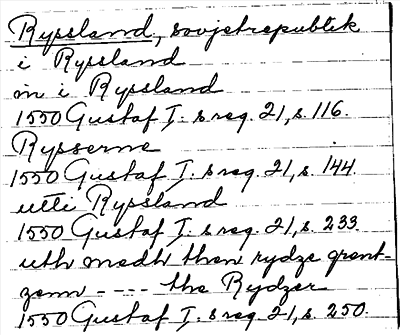 Ryssland, sovjetrepublik
i Ryssland
in i Ryssland
1550 Gustaf I:s reg. 21, s. 116.
Rysserne
1550 Gustaf I:s reg. 21, s. 144.
utti Ryssland
1550 Gustaf I:s reg. 21, s. 233
uth medh then rydze grent-
zenn ---- the Rydzer
1550 Gustaf I:s reg. 21, s. 250.